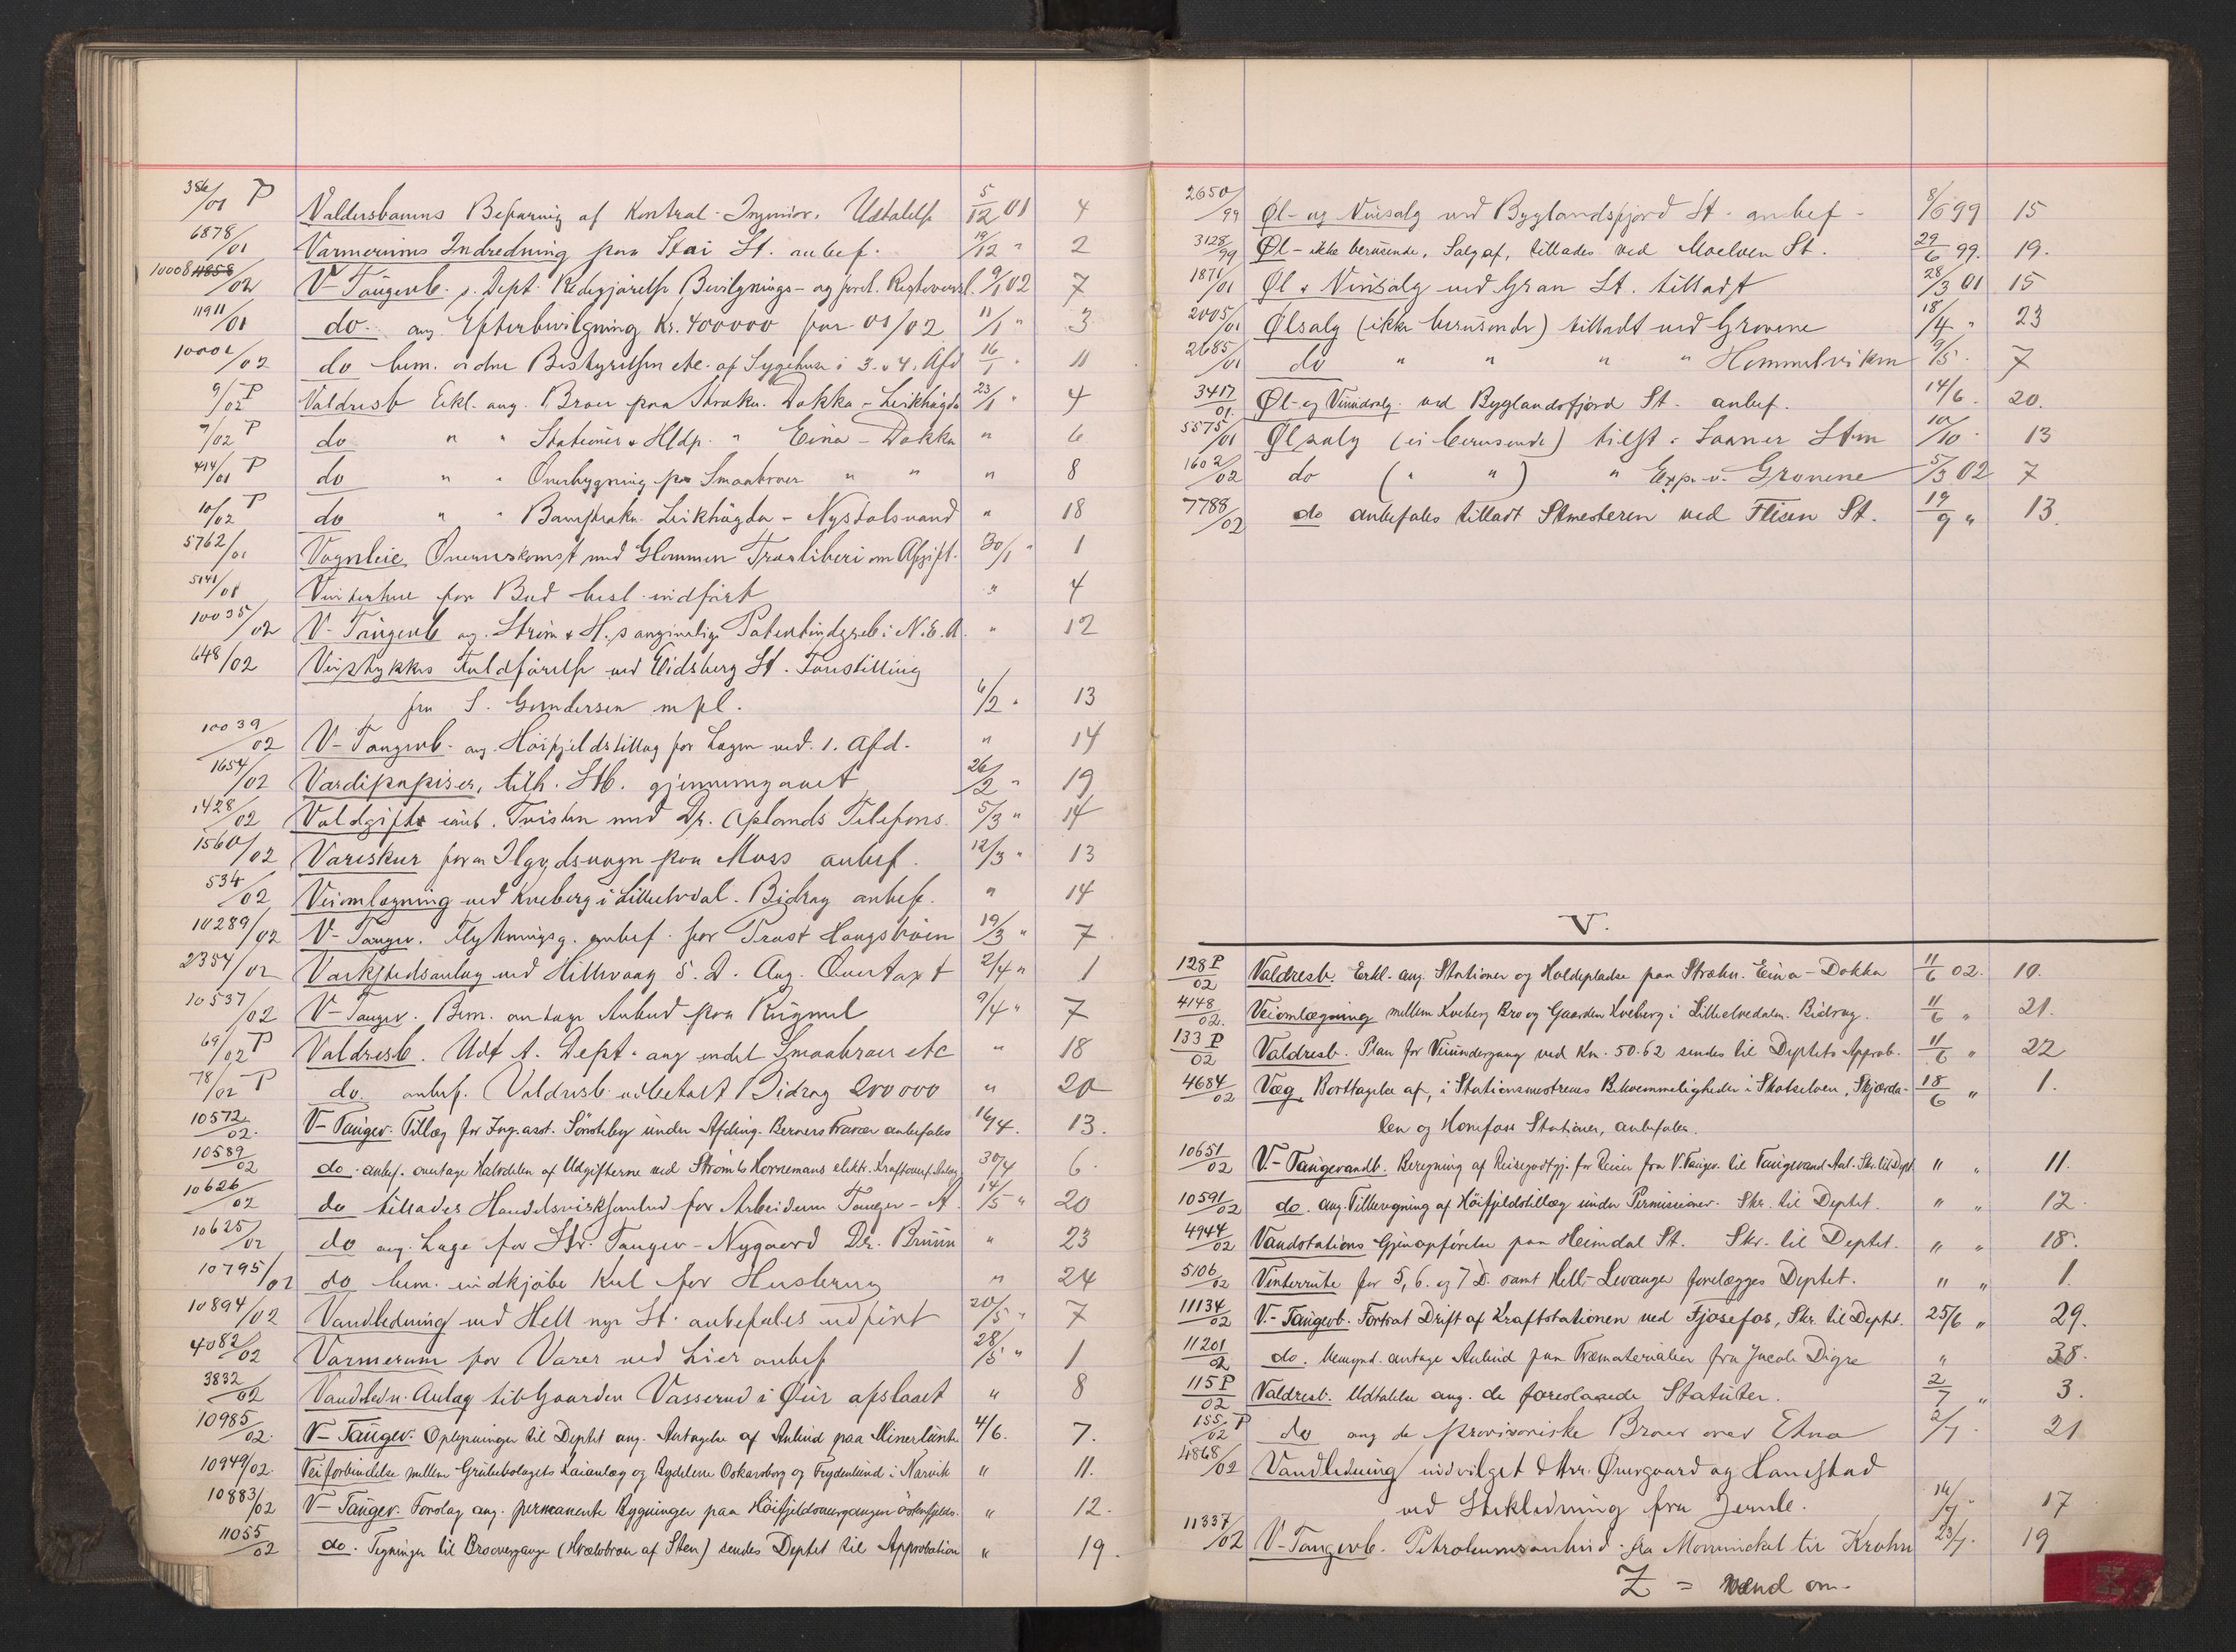 386/01 P Valdersbanens Befaring af Kontrol-Ingeniør. Udtalelse 5/12 01 4
6878/01 Varmerums Indredning paa Stai St. anbef. 19/12 " 2
10008/02 V-Taugevb. s. Dept. Redegjørelse Bevilgnings- og 9/1 02 7
11911/01 do ang. Efterbevilgning Kr. 400000 for 01/02 11/1 " 3
10002/02 do bem. ordne Bestyrelsen etc. af Sygehuse i 3. & 4. Afd 16/1 " 11
9/02 P Valdresb Erkl. ang. Broer paa Strækn. Dokka - Leikhögda 23/1 " 4
7/02 P do " " Stationer & Hldp. " Eina - Dokka " 6
414/01 P do " " Overbygning paa Smaabroer " " " 8
10/02 P do " " Strækn. Leikhögda - Nystølsvand " 18
5762/01 Vognleie. Overenskomst med Glommen Træsliberi om Afgift. 30/1 " 1
5141/01 Vinterhue for Bud besl. indført " 4
10035/02 V-Taugevb ag. Strøm & H.s angivelige Patentindgreb i N.E.A. " 12
648/02 Veistykkes Fuldførelse ved Eidsberg St. Forestilling
fra S. Gundersen m fl. 6/2 " 13
10039/02 V-Taugevb. ang. Höifjeldstillæg for Lægen ved 1. Afd. " 14
1654/02 Værdipapirer, tilh. Stb. gjennemgaaet 26/2 " 19
1428/02 Voldgifts Tvisten med Dr. Oplands Telefons. 5/3 " 14
1560/02 Vareskur for en Ilgodsvogn paa Moss anbef. 12/3 " 13
534/02 Veiomlægning ved Kveberg i Lilleelvdal. Bidrag anbef. " 14
10289/02 V-Taugev. Flytningsg. anbef. for Trast Haugsböen 19/3 " 7
2354/02 Værkstedsanlæg ved Hillevaag 5. D. Ang. Overtaxt 2/4 " 1
10537/02 V-Taugev. Bem. antage Anbud paa Rugmel 9/4 " 7
69/02 P Valdresb. Udt t. Dept. ang endel Smaabroer etc " 18
78/02 P do anbef. Valdresb. udbetalt Bidrag 200000 " 20
10572/02. V-Taugev. Tillæg for Ing.asst. Sönsteby under Afding. Berners Fravær anbefales 16/4. 13.
10589/02 do. anbef. overtage Halvdelen af Udgifterne ved Ström & Hornemans elektr. Kraftoverf. Anlæg 30/4 6.
10626/02 do tillades Handelsvirksomhed for Arbeiderne Taugev - A. 14/5 " 20
10625/02 do ang. Læge for Str. Taugev - Nygaard Dr. Bruun " 23
10795/02 do bem. indkjøbe Kul for Husbrug " 24
10894/02 Vandledning ved Hell nye St. anbefales udført 20/5 " 7
4082/02 Varmerum for Varer ved Lier anbef 28/5 " 1
3832/02 Vandledn. Anlæg til Gaarden Vasserud i Øier afslaaet " 8
10985/02. V-Taugev. Oplysninger til Deptet ang. Antagelse af Anbud paa Minerlunte 4/6. 7.
10949/02. Veiforbindelse mellem Grubebolagets Kaianlæg og Bydelene Oskarsborg og Frydenlund i Narvik " 11.
10883/02 V-Taugev. Forslag ang. permanente Bygninger paa Höifjeldsovergangen östenfjelds. " 12.
11055/02 do. Tegninger til Broovergange (Hvælvbroer af Sten) sendes Deptet til Approbation " 19.
2650/99 Øl- og Vinsalg ved Byglandsfjord St. anbef - 8/6 99 15
3128/99 Øl - ikke berusende, Salg af, tillades ved Moelven St. 29/6 99. 19.
1871/01 Øl & Vinsalg ved Gran St. tilladt 28/3 01 15
2005/01 Ølsalg (ikke berusende) tilladt ved Grovene 18/4 " 23
2685/01 do " " " " Hommelviken 9/5 " 7
3417/01. Øl- og Vinudsalg ved Byglandsfjord St. anbef. 14/6. 20.
5575/01 Ølsalg (ei berusende) tilst. i Saaner Stn 10/10 " 13
1602/02 do ( " " ) " Exp. v. Grovene 5/3 02 7
7788/02 do anbefales tilladt Stmesteren ved Flisen St. 19/9 " 13.
V.
128 P/02 Valdresb. Erkl. ang. Stationer og Holdepladse paa Strækn. Eina - Dokka 11/6 02. 10.
4148/02. Veiomlægning mellem Kveberg Bro og Gaarden Kveberg i Lilleelvedalen. Bidrag. 11/6 " 21.
133 P/02 Valdresb. Plan for Veiundergang ved Km. 50.62 sendes til Deptets Approb. 11/6 " 22
4684/02 Væg, Borttagelse af, i Stationsmestrenes Bekvemmeligheder i Skotselven, Skjærda- 18/6 " 1.
len og Hönefoss Stationer, anbefales.
10651/02 V.-Taugevandb. Beregning af Reisegodtgj. for Reiser fra V.Taugev. til Taugevand Anl. Skr. til Dept. " " 11.
10591/02 do. ang. Tilberegning af Höifjeldstillæg under Permissioner. Skr. til Deptet. " " 12.
4944/02 Vandstations Gjenopførelse paa Heimdal St. Skr. til Deptet. " " 18.
5106/02 Vinterrute for 5, 6. og 7 D. samt Hell-Levanger forelægges Deptet. " " 1.
11134/02 V.-Taugevb. Fortsat Drift af Kraftstationen ved Fjosefos, Skr. til Deptet. 25/6 " 29.
11201/02 do. bemynd. antage Anbud paa Træmaterialier fra Jacob Digre " 38.
115 P/02 Valdresb. Udtalelse ang. de foreslaaede Statuter. 2/7 " 3.
155 P/02 do ang de provisoriske Broer over Etna 2/7 " 21
4868/02 Vandledning indvilget d'Hrr. Overgaard og Hanestad
ved Stikledning fra Jernb. 16/7 " 17
11337/02 V-Taugevb. Petroleumsanbud fra til Krohn 23/7. 19
Z = vend om.